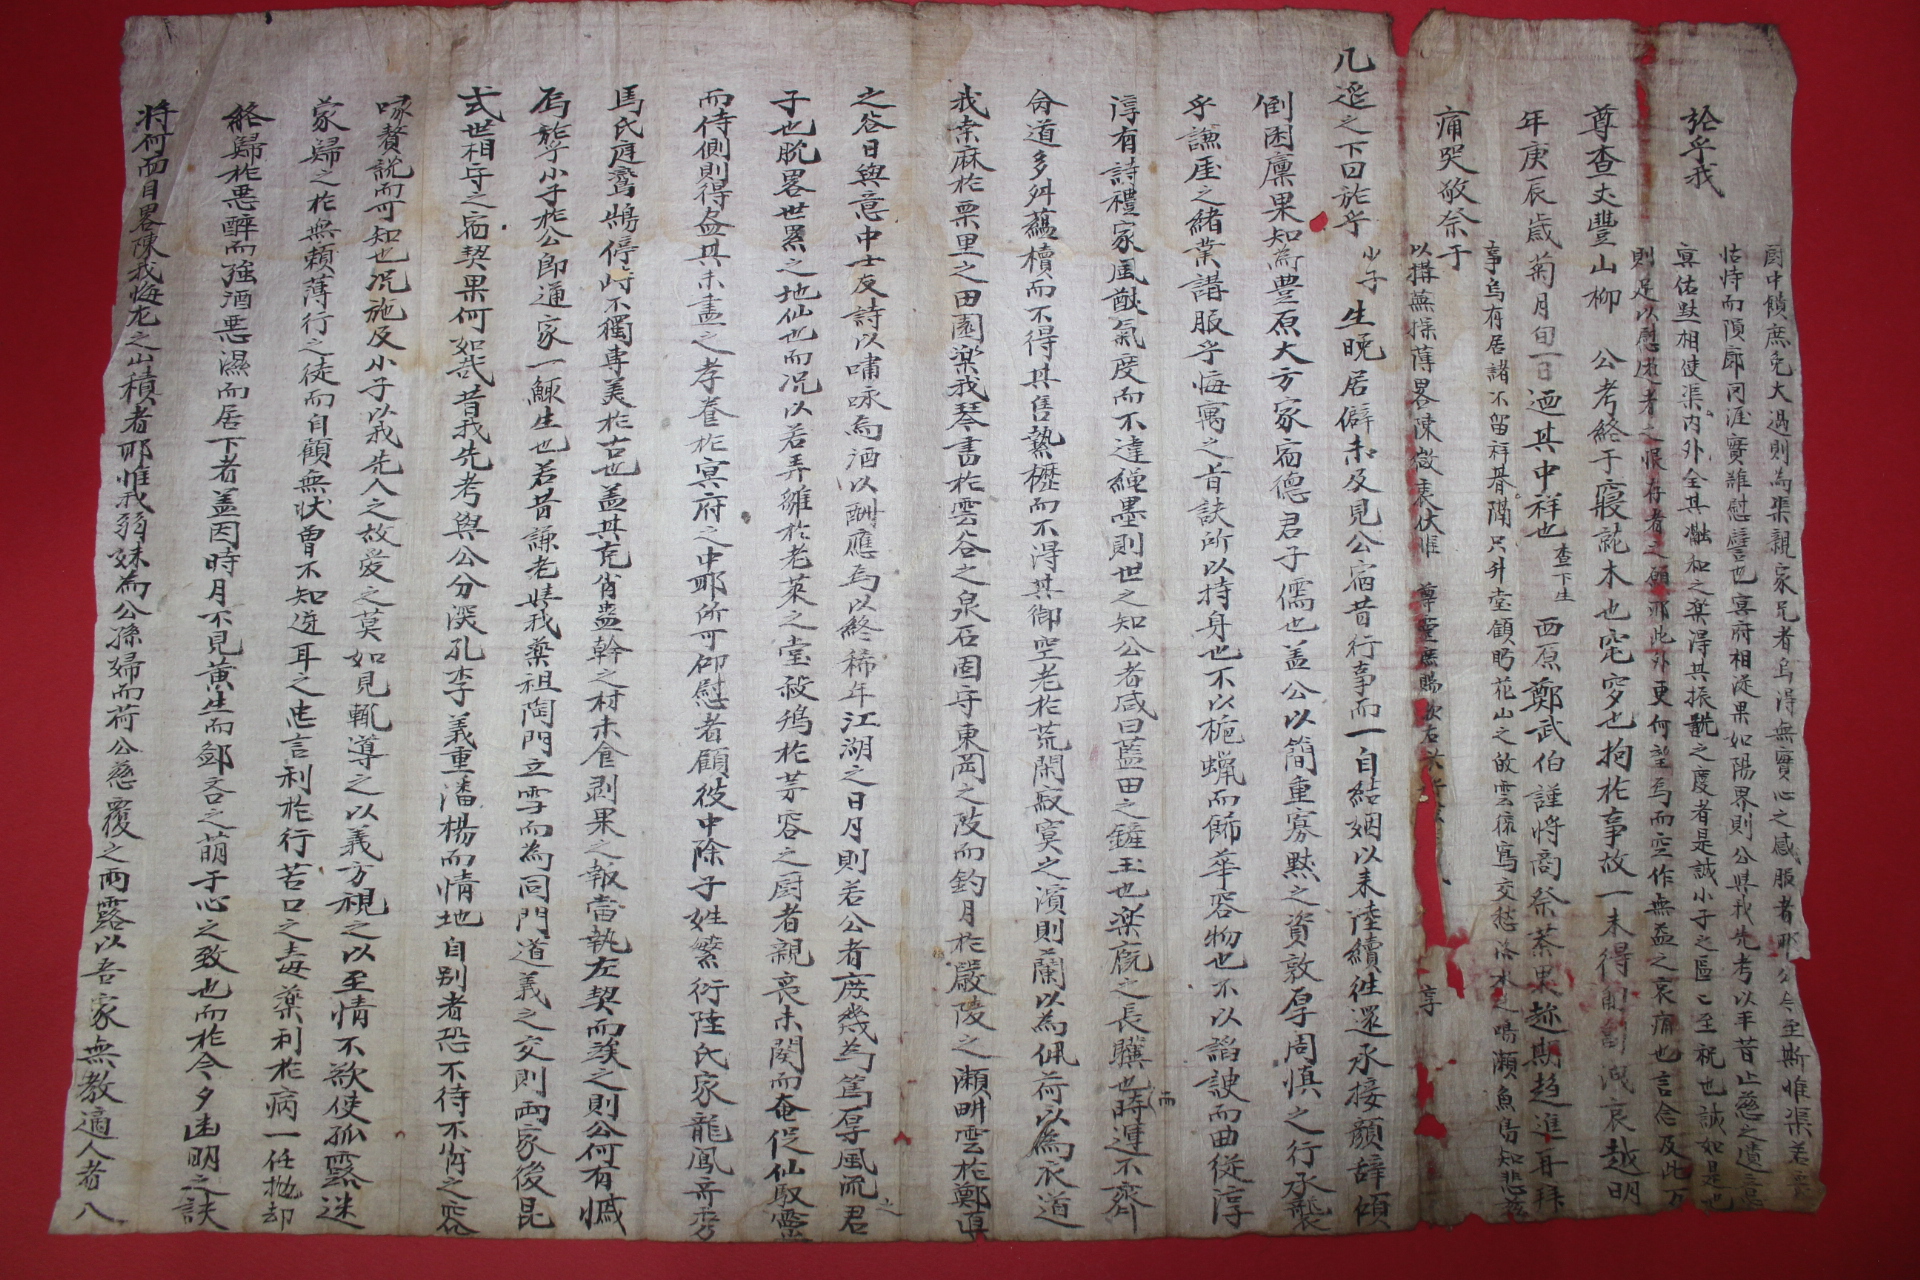 厨中饋庶免大過則為渠親家兄者烏得無實心之感服者耶公今至斯惟渠若
怙恃而隕廓罔涯實難慰譬也冥府相從果如陽界則公與我先考以平昔止慈之遺意
於乎我
冥佑默相使渠內外全其瀜和之楽得其振䎱之慶者是誠小子之區〻至祝也誠如是也
則足以慰逝者之恨存者之願耶此外更何望焉而空作無益之哀痛也言念及此万
尊査丈豊山柳 公考終于寢就木也窀穸也拘於事故一未得 哀越明
年庚辰歲菊月旬一日迺其中祥也 査下生 西原鄭武伯謹將商祭茶果趂期趍進再拜
事烏有居諸不留祥朞隔只升堂顧眄花山之 雲 寫交愁洛水之鳴瀨魚鳥知悲玆
痛哭敬祭于
以搆蕪操薄畧陳 衷伏惟 尊靈庶賜 右 享
几筵之下曰於乎 小子 生晚居僻未及見公宿昔行事而一自結姻以来陸續徃還承接顏辞傾
倒困廩果知為豊原大方家宿德君子儒也盖公以簡重寡黙之資敦厚周慎之行承襲
乎謙厓之緒業講服乎悔寓之旨訣所以持身也不以梔蝋而餙華容物也不以謟諛而曲從淳
淳有詩禮家風猷氣度而不達䋲墨則世之知公者咸曰藍田之鏟玉也楽廐之長驥也而時運不齊
命道多舛蘊櫝而不得其售蟄櫪而不淂其御空老於荒閑寂寞之濱則蘭以為佩荷以為衣道
我桒麻於栗里之田園楽我琴書於雲谷之泉石固守東岡之陂而釣月於嚴陵之瀬畊雲於鄭眞
之谷日與意中士友詩以嘯咏焉酒以酬應焉以終稀年江湖之日月則若公者庶幾為篤厚風流之君
子也脫畧世累之地仙也而况以若弄雛於老萊之堂殺鷄於茅容之厨者親喪未闋而奄促仙馭靈
而侍側則得盡其未盡之孝養於冥府之中耶所可仰慰者顧彼中除子姓繁衍陸氏家龍鳳奇秀
馬氏庭鸞鵠停峙不獨專美於古也盖其克肖盡幹之材未食剥果之報當執左契而俟之則公何有慽
焉於乎小子於公即通家一鯫生也若昔謙老嬉我藥祖陶門立雪而為同門道義之交則両家後昆
式世相守之宿契果何如哉昔我先考與公分深孔李義重潘楊而情地自别者恐不待不肖之容
喙贅說而可知也况施及小子以我先人之故爱之莫如見輒導之以義方視之以至情不欲使孤露迷
蒙歸之於無頼薄行之徒而自顧無状曾不知逆耳之忠言利於行苦口之毒藥利於病一任抛却
終歸於悪醉而强酒悪濕而居下者盖因時月不見黄生而鄙吝之萌于心之致也而於今夕幽明之訣
將何面目畧陳我悔尤之山積者耶惟我弱妹為公孫婦而荷公慈覆之雨露以吾家無教適人者入